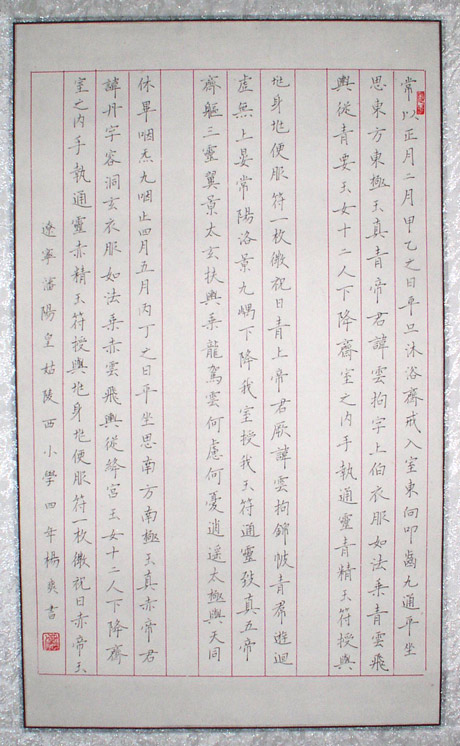 常以正月二月甲乙之日平旦沐浴齋戒入室東向叩齒九通平坐
思東方東極玉真青帝君諱雲拘字上伯衣服如法乘青雲飛
輿從青要玉女十二人下降齋室之內手執通靈青精玉符授與
兆身兆便服符一枚微祝曰青上帝君厥諱雲拘錦帔青帬遊迴
虛無上晏常陽洛景九嵎下降我室授我玉符通靈致真五帝
齋軀三靈翼景太玄扶輿乘龍駕雲何慮何憂逍遙太極與天同
休畢咽炁九咽止四月五月丙丁之日平坐思南方南極玉真赤帝君
諱丹字容洞玄衣服如法乘赤雲飛輿從絳宮玉女十二人下降齋
室之內手執通靈赤精玉符授與兆身兆便服符一枚微祝曰赤帝玉
遼寧瀋陽皇姑陵西小學四年楊爽書